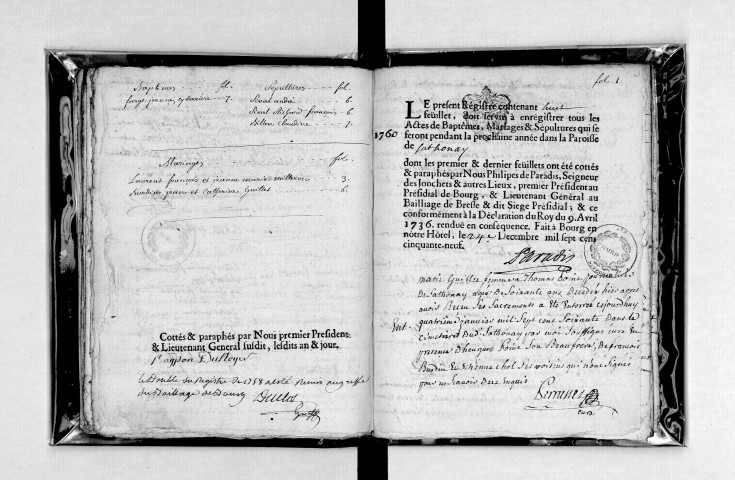 Baptêmes fol. Sepultures fol.
7. Rival andré 6.
Rival françois 6.
Claudine 7.
Mariages fol.
Laurent françois et jeanne marie 3.
jeane et Catherine Guillet 6.
Cottés & paraphés par Nous premier President
& Lieutenant General susdit, lesdits an & jour.
le Double du Registre de 1758 a été Remis au greffe
du Bailliage de Bourg
fol. 1
LE present Régistre contenant huit
feüillet, doit servir à enrégistrer tous les
Actes de Baptêmes, Mariages & Sépultures qui se
1760 feront pendant la prochaine année dans la Paroisse
de Sathonay
dont les premier & dernier feüillets ont été cottés
& paraphés par Nous Philipes de Paradis, Seigneur
des Jonchets & autres Lieux, premier Président au
Présidial de Bourg, & Lieutenant Général au
Bailliage de Bresse & dit Siege Présidial; & ce
conformément à la Déclaration du Roy du 9. Avril
1736. renduë en consequence. Fait à Bourg en
nôtre Hôtel, le 24e Decembre mil sept cens
cinquante-neuf.
Paradis
Guillet Thomas
De Sathonay De Soixante ans Decedée hier apres
avoir Recu Ses Sacrements a Eté Enterrée cejourdhuy
Ent. quatrieme janvier mil Sept cent Soixante Dans le
cimetiere Dud. Sathonay par moi Soussigné curé En
presence Son Beaufrere, De francois
Et Etienne Ses voisins qui n'ont Signés
pour ne Savoir De ce Enquis
curé